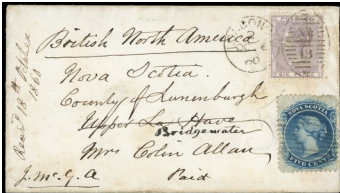 British North America
Nova Scotia
County of Lunenburgh
Upper La Have
Bridgewater
Mrs Colin Allan
Paid
J. McG. A
Recd 18th October
1860
NOVA SCOTIA
FIVE CENTS